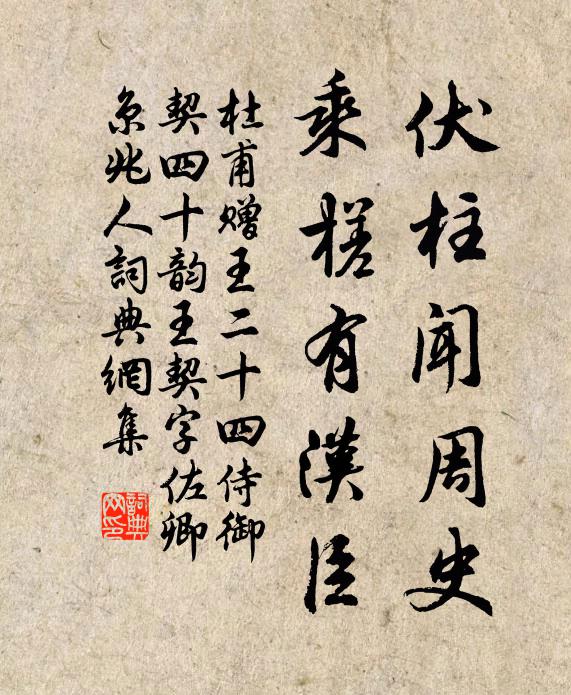 伏柱闻周史
乘槎有漢臣
杜甫赠王二十四侍御
契四十韵王契字佐卿
京兆人詞典網集
詞典网印